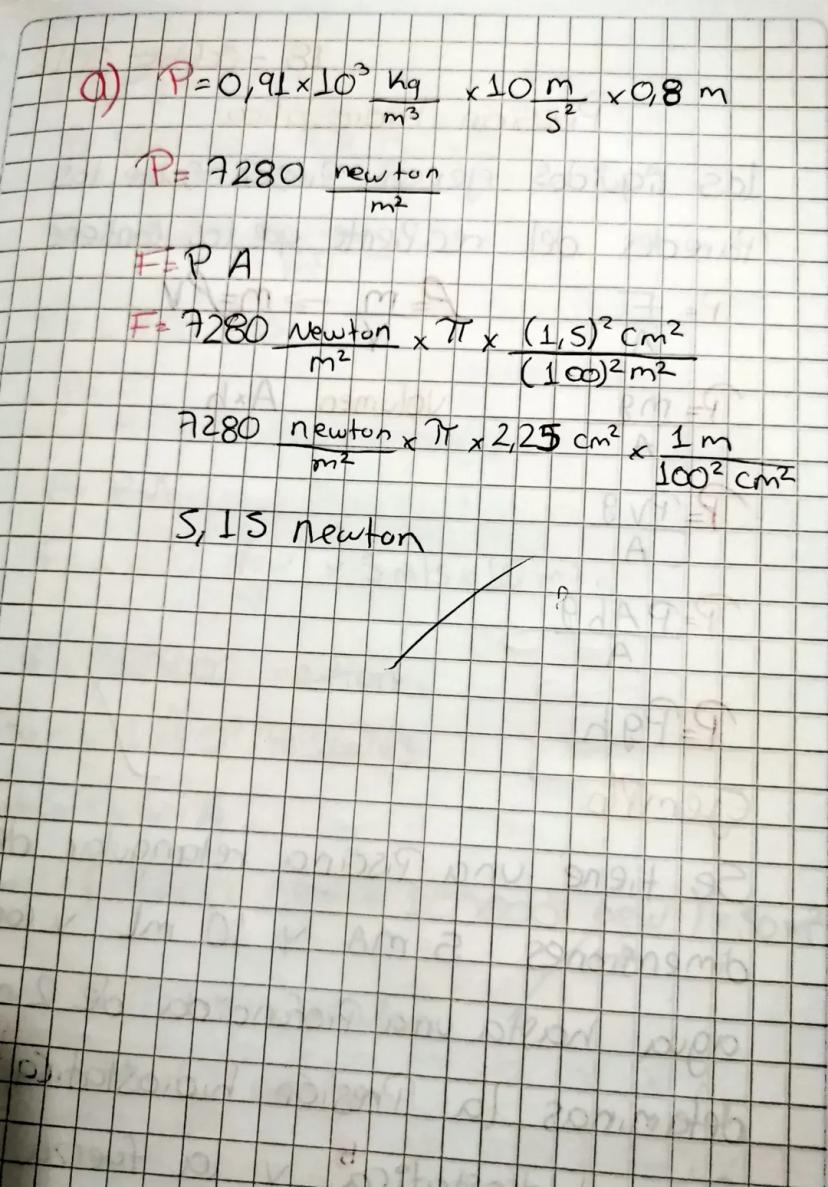 a) P = 0,91 × 10³ kg/m³ × 10 m/s² × 0,8 m
P = 7280 newton/m²
F = P A
F = 7280 Newton/m² × π × (1,5)² cm²/(100)² m²
7280 newton/m² × π × 2,25 cm² × 1 m/100² cm²
5,15 newton